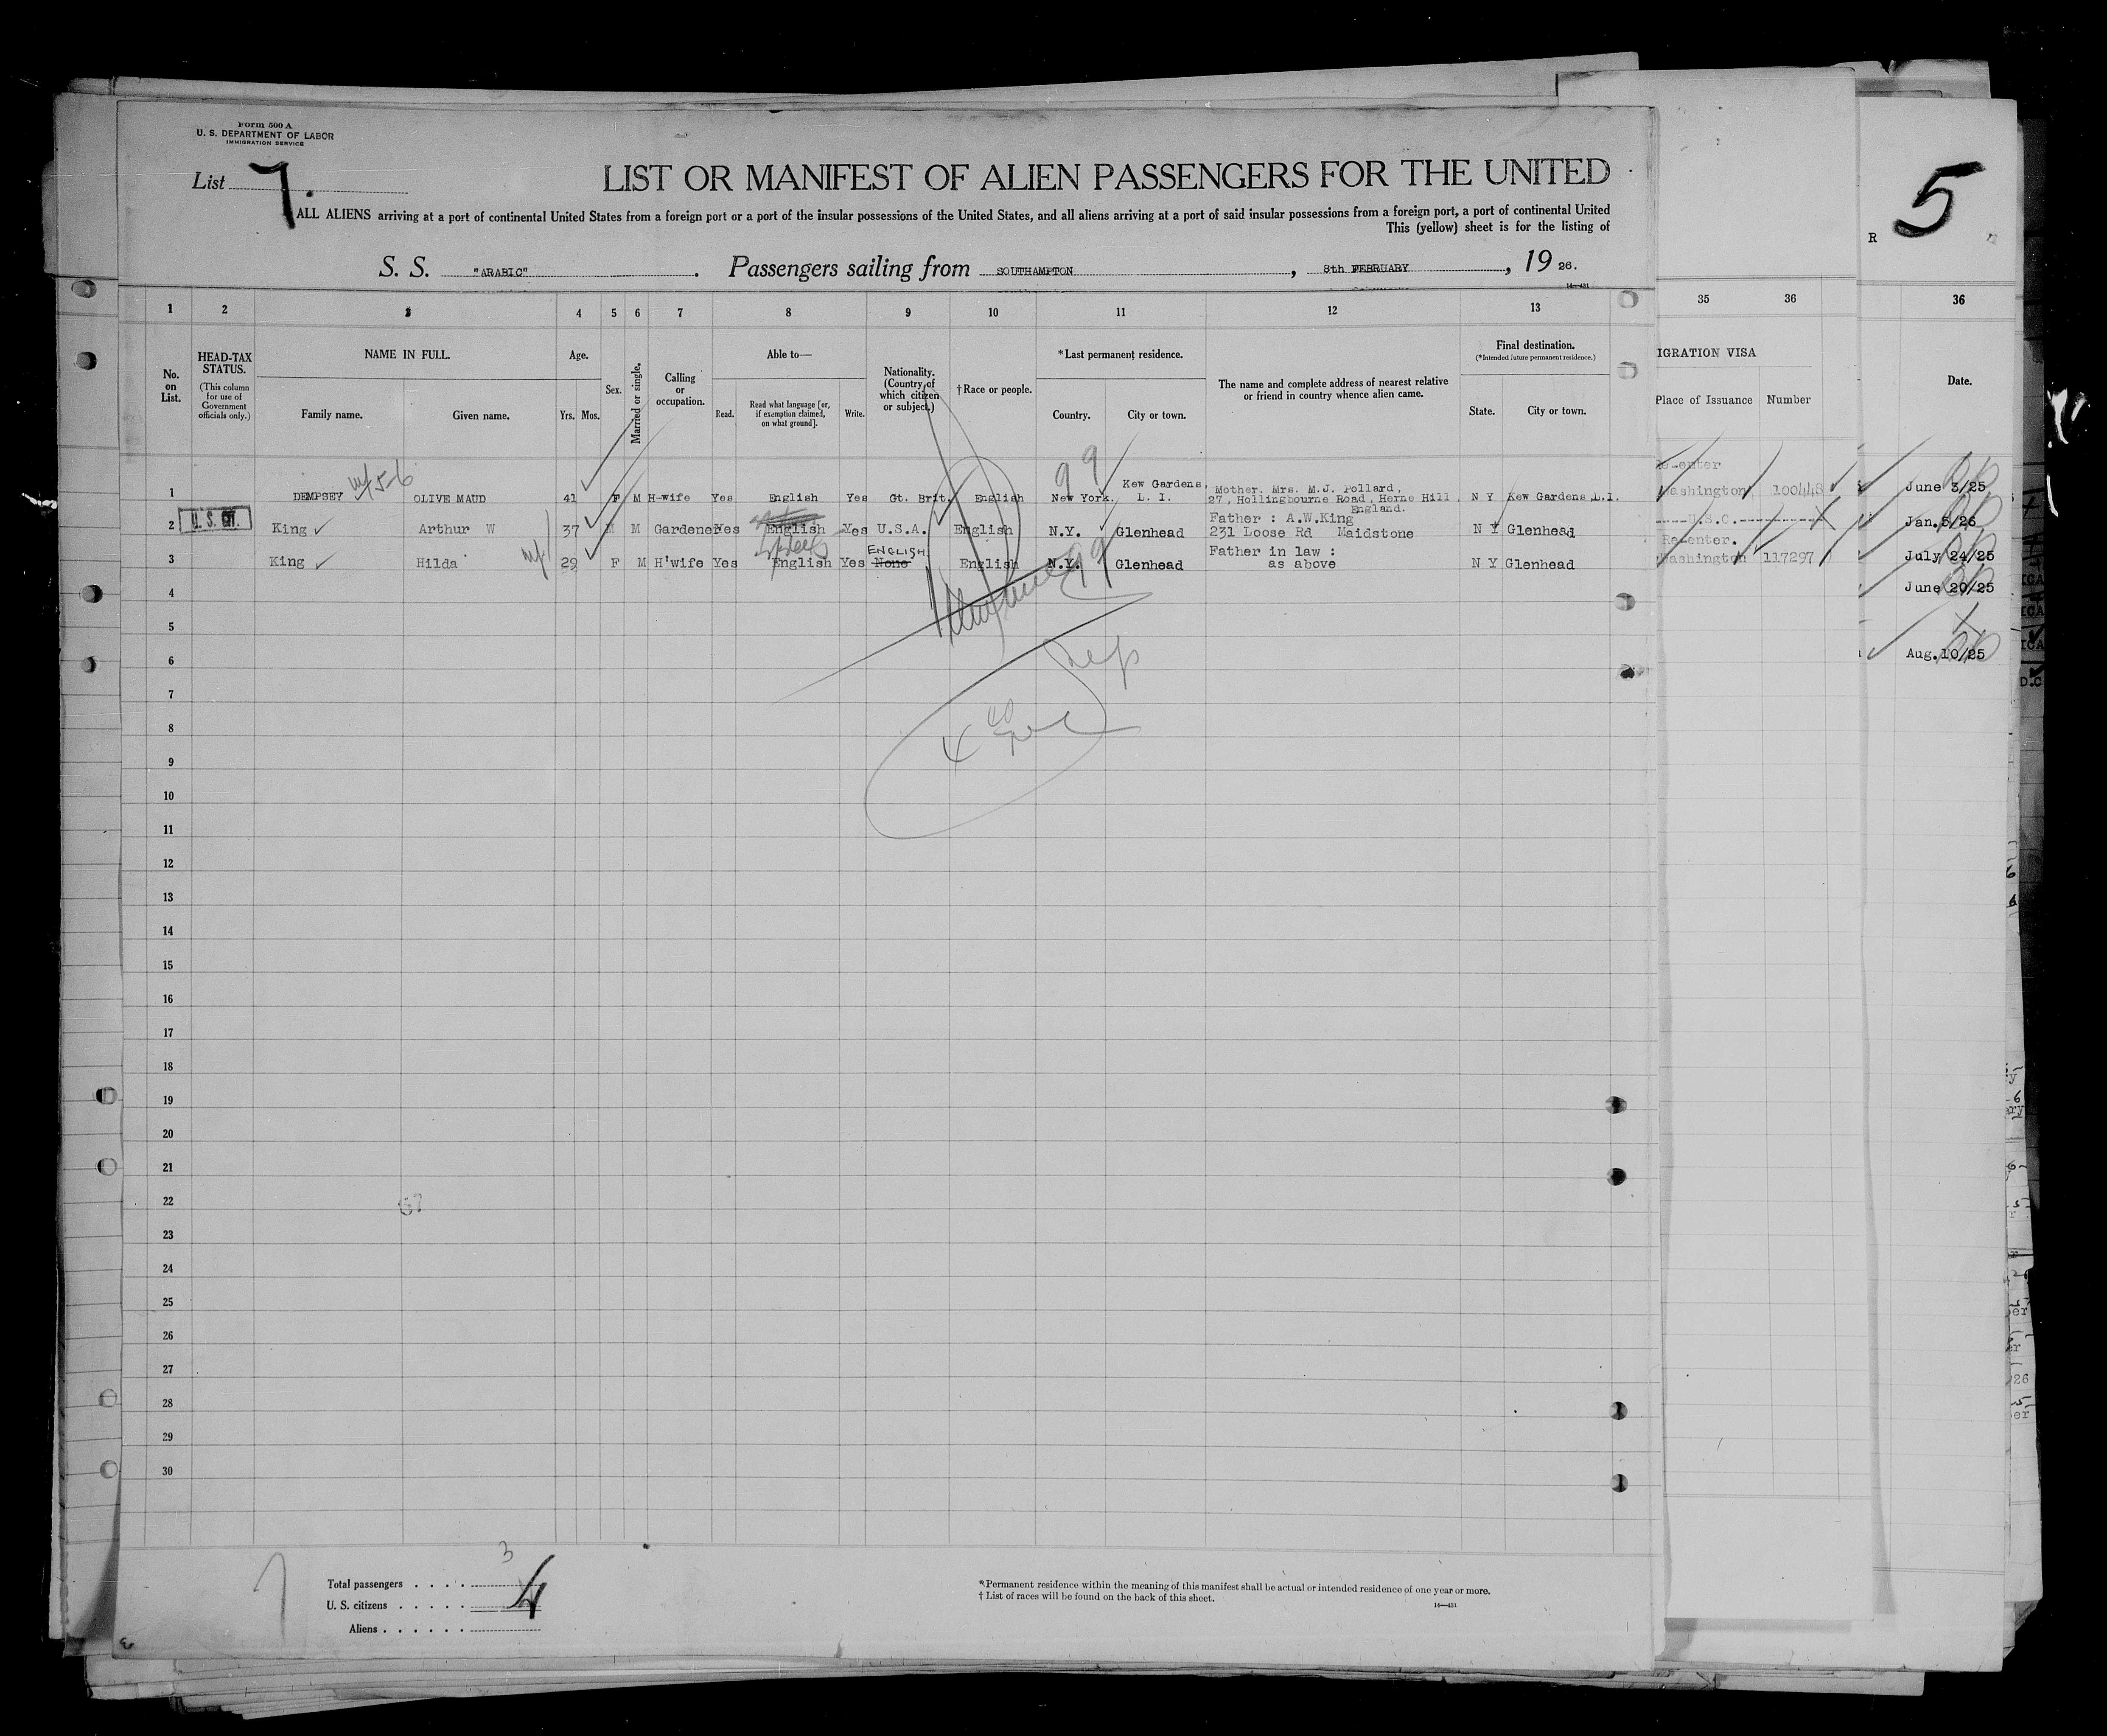 Form 500 A
U. S. DEPARTMENT OF LABOR
IMMIGRATION SERVICE
List 7.
LIST OR MANIFEST OF ALIEN PASSENGERS FOR THE UNITED
ALL ALIENS arriving at a port of continental United States from a foreign port or a port of the insular possessions of the United States, and all aliens arriving at a port of said insular possessions from a foreign port, a port of continental United
This (yellow) sheet is for the listing of
S. S. "ARABIC". Passengers sailing from SOUTHAMPTON, 8th FEBRUARY, 19 26.
14—431
5
R
1 2 3 4 5 6 7 8 9 10 11 12 13 35 36 36
No. on List.
HEAD-TAX STATUS.
(This column for use of Government officials only.)
NAME IN FULL.
Family name. Given name.
Age.
Yrs. Mos.
Sex.
Married or single.
Calling or occupation.
Able to—
Read. Read what language [or, if exemption claimed, on what ground]. Write.
Nationality. (Country of which citizen or subject.)
†Race or people.
*Last permanent residence.
Country. City or town.
The name and complete address of nearest relative or friend in country whence alien came.
Final destination.
(*Intended future permanent residence.)
State. City or town.
IGRATION VISA
Place of Issuance Number
Date.
99
1 DEMPSEY OLIVE MAUD 41 F M H-wife Yes English Yes Gt. Brit. English New York. Kew Gardens, L. I. Mother. Mrs. M.J. Pollard, 27, Hollingbourne Road, Herne Hill, England. N Y Kew Gardens L.I. Re-enter Washington 100448 June 3/25
2 U. S. CIT. King Arthur W 37 M M Gardener Yes English Yes U.S.A. English N.Y. Glenhead Father : A.W.King 231 Loose Rd Maidstone N Y Glenhead U.S.C. Jan.5/26
3 King Hilda 29 F M H'wife Yes English Yes ENGLISH None English N.Y. 99 Glenhead Father in law : as above N Y Glenhead Re-enter. Washington 117297 July 24/25
4 June 20/25
5
6 Aug.10/25
7
8
9
10
11
12
13
14
15
16
17
18
19
20
21
22
23
24
25
26
27
28
29
30
3
Total passengers . . . . 4
U. S. citizens . . . . .
Aliens . . . . . .
*Permanent residence within the meaning of this manifest shall be actual or intended residence of one year or more.
† List of races will be found on the back of this sheet.
14—431